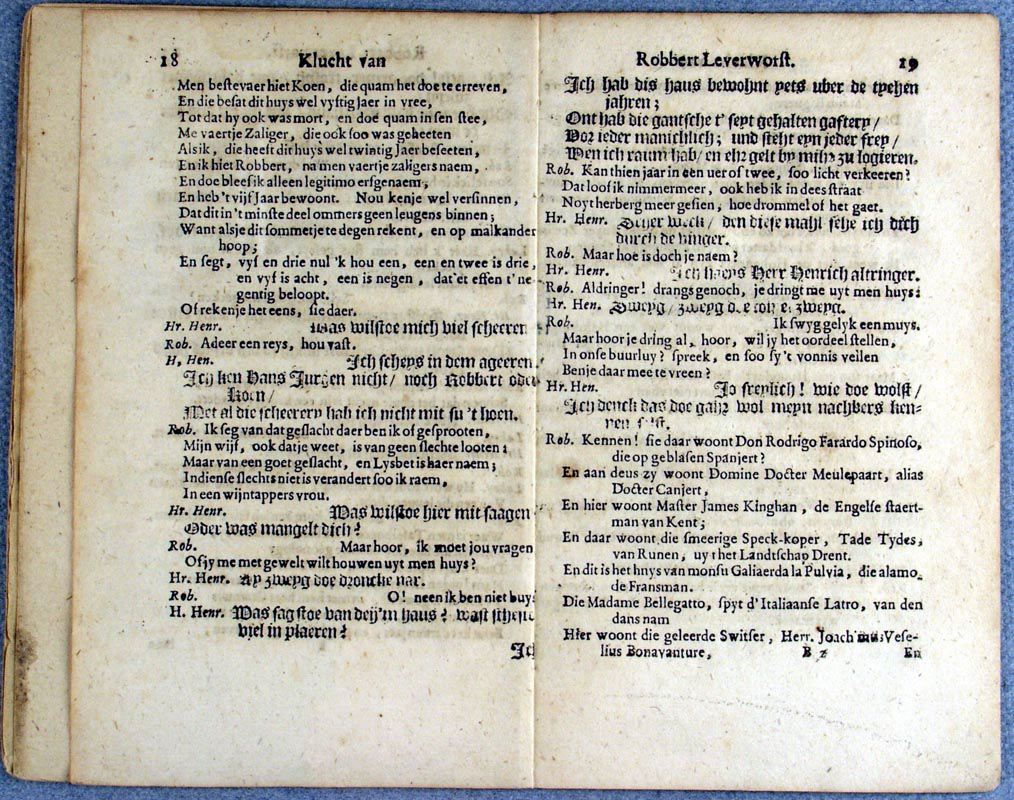 18 Klucht van
Men bestevaer hiet Koen, die quam het doe te erreven,
En die besat dit huys wel vyftig Jaer in vree,
Tot dat hy ook was mort, en doe quam in sen stee,
Me vaertje Zaliger, die ook soo was geheeten
Als ik, die heeft dit huys wel twintig Jaer beseeten,
En ik hiet Robbert, na men vaertje zaligers naem,
En doe bleef ik alleen legitimo erfgenaem,
En heb 't vijf Jaar bewoont. Nou kenje wel versinnen,
Dat dit in 't minste deel ommers geen leugens binnen;
Want als je dit sommetje te degen rekent, en op malkander
hoop;
En segt, vyf en drie nul 'k hou een, een en twee is drie,
en vyf is acht, een is negen, dat'et effen t' ne-
gentig beloopt.
Of rekenje het eens, sie daer.
Hr. Henr. Was wilstoe mich viel scheeren
Rob. Adeer een reys, hou vast.
H. Hen. Ich scheys in dem ageeren.
Ich ken Hans Jurgen nicht/ noch Robbert oder
Koen/
Met al die scheerery hab ich nicht mit su 't hoen.
Rob. Ik seg van dat geslacht daer ben ik of gesprooten,
Mijn wijf, ook datje weet, is van geen slechte looten;
Maar van een goet geslacht, en Lysbet is haer naem;
Indien se slechts niet is verandert soo ik raem,
In een wijntappers vrou.
Hr. Henr. Was wilstoe hier mit saagen
Oder was mangelt dich?
Rob. Maar hoor, ik moet jou vragen
Of jy me met gewelt wilt houwen uyt men huys?
Hr. Henr. Ay zweyg doe droncke nar.
Rob. O! neen ik ben niet buys
H. Henr. Was sagstoe van deijm haus? wast
viel in plaeren?
Ich
Robbert Leverworst. 19
Ich hab dis haus bewohnt yets uber de tzehen
jahren;
Ont hab die gantsche t' seyt gehalten gastery/
Voz ieder manichlich; und steht eyn jeder frey/
Wen ich raum hab/ en ehr gelt by mihz zu logieren.
Rob. Kan thien jaar in een uer of twee, soo licht verkeeren?
Dat loof ik nimmermeer, ook heb ik in dees straat
Noyt herberg meer gesien, hoe drommel of het gaet.
Hr. Henr. week/ den diese mahl sehe ich dich
durch de vinger.
Rob. Maar hoe is doch je naem?
Hr. Henr. Ich heeys Herr Henrich altringer.
Rob. Aldringer! drangs genoch, je dringt me uyt men huys:
Hr. Hen. Zweyg/ zweyg
Rob. Ik swyg gelyk een muys.
Maar hoor je dring al, hoor, wil jy het oordeel stellen,
In onse buurluy? spreek, en soo sy 't vonnis vellen
Ben je daar mee te vreen?
Hr. Hen. Jo freylich! wie doe wolst/
Ich denck das doe gahz wol meyn nachbers ken-
nen
Rob. Kennen! sie daar woont Don Rodrigo Farardo Spinoso,
die opgeblasen Spanjert?
En aan deus zy woont Domine Docter Meulepaart, alias
Docter Canjert,
En hier woont Master James Kinghan, de Engelse staert-
man van Kent;
En daar woont die smeerige Speck-koper, Tade Tydes,
van Runen, uyt het Landtschap Drent.
En dit is het huys van monsu Galiaerda la Pulvia, die alamo-
de Fransman.
Die Madame Bellegatto, spyt d'Italiaanse Latro, van den
dans nam
Hier woont die geleerde Switser, Herr. Joachimus Vese-
lius Bonavanture, B 2 En